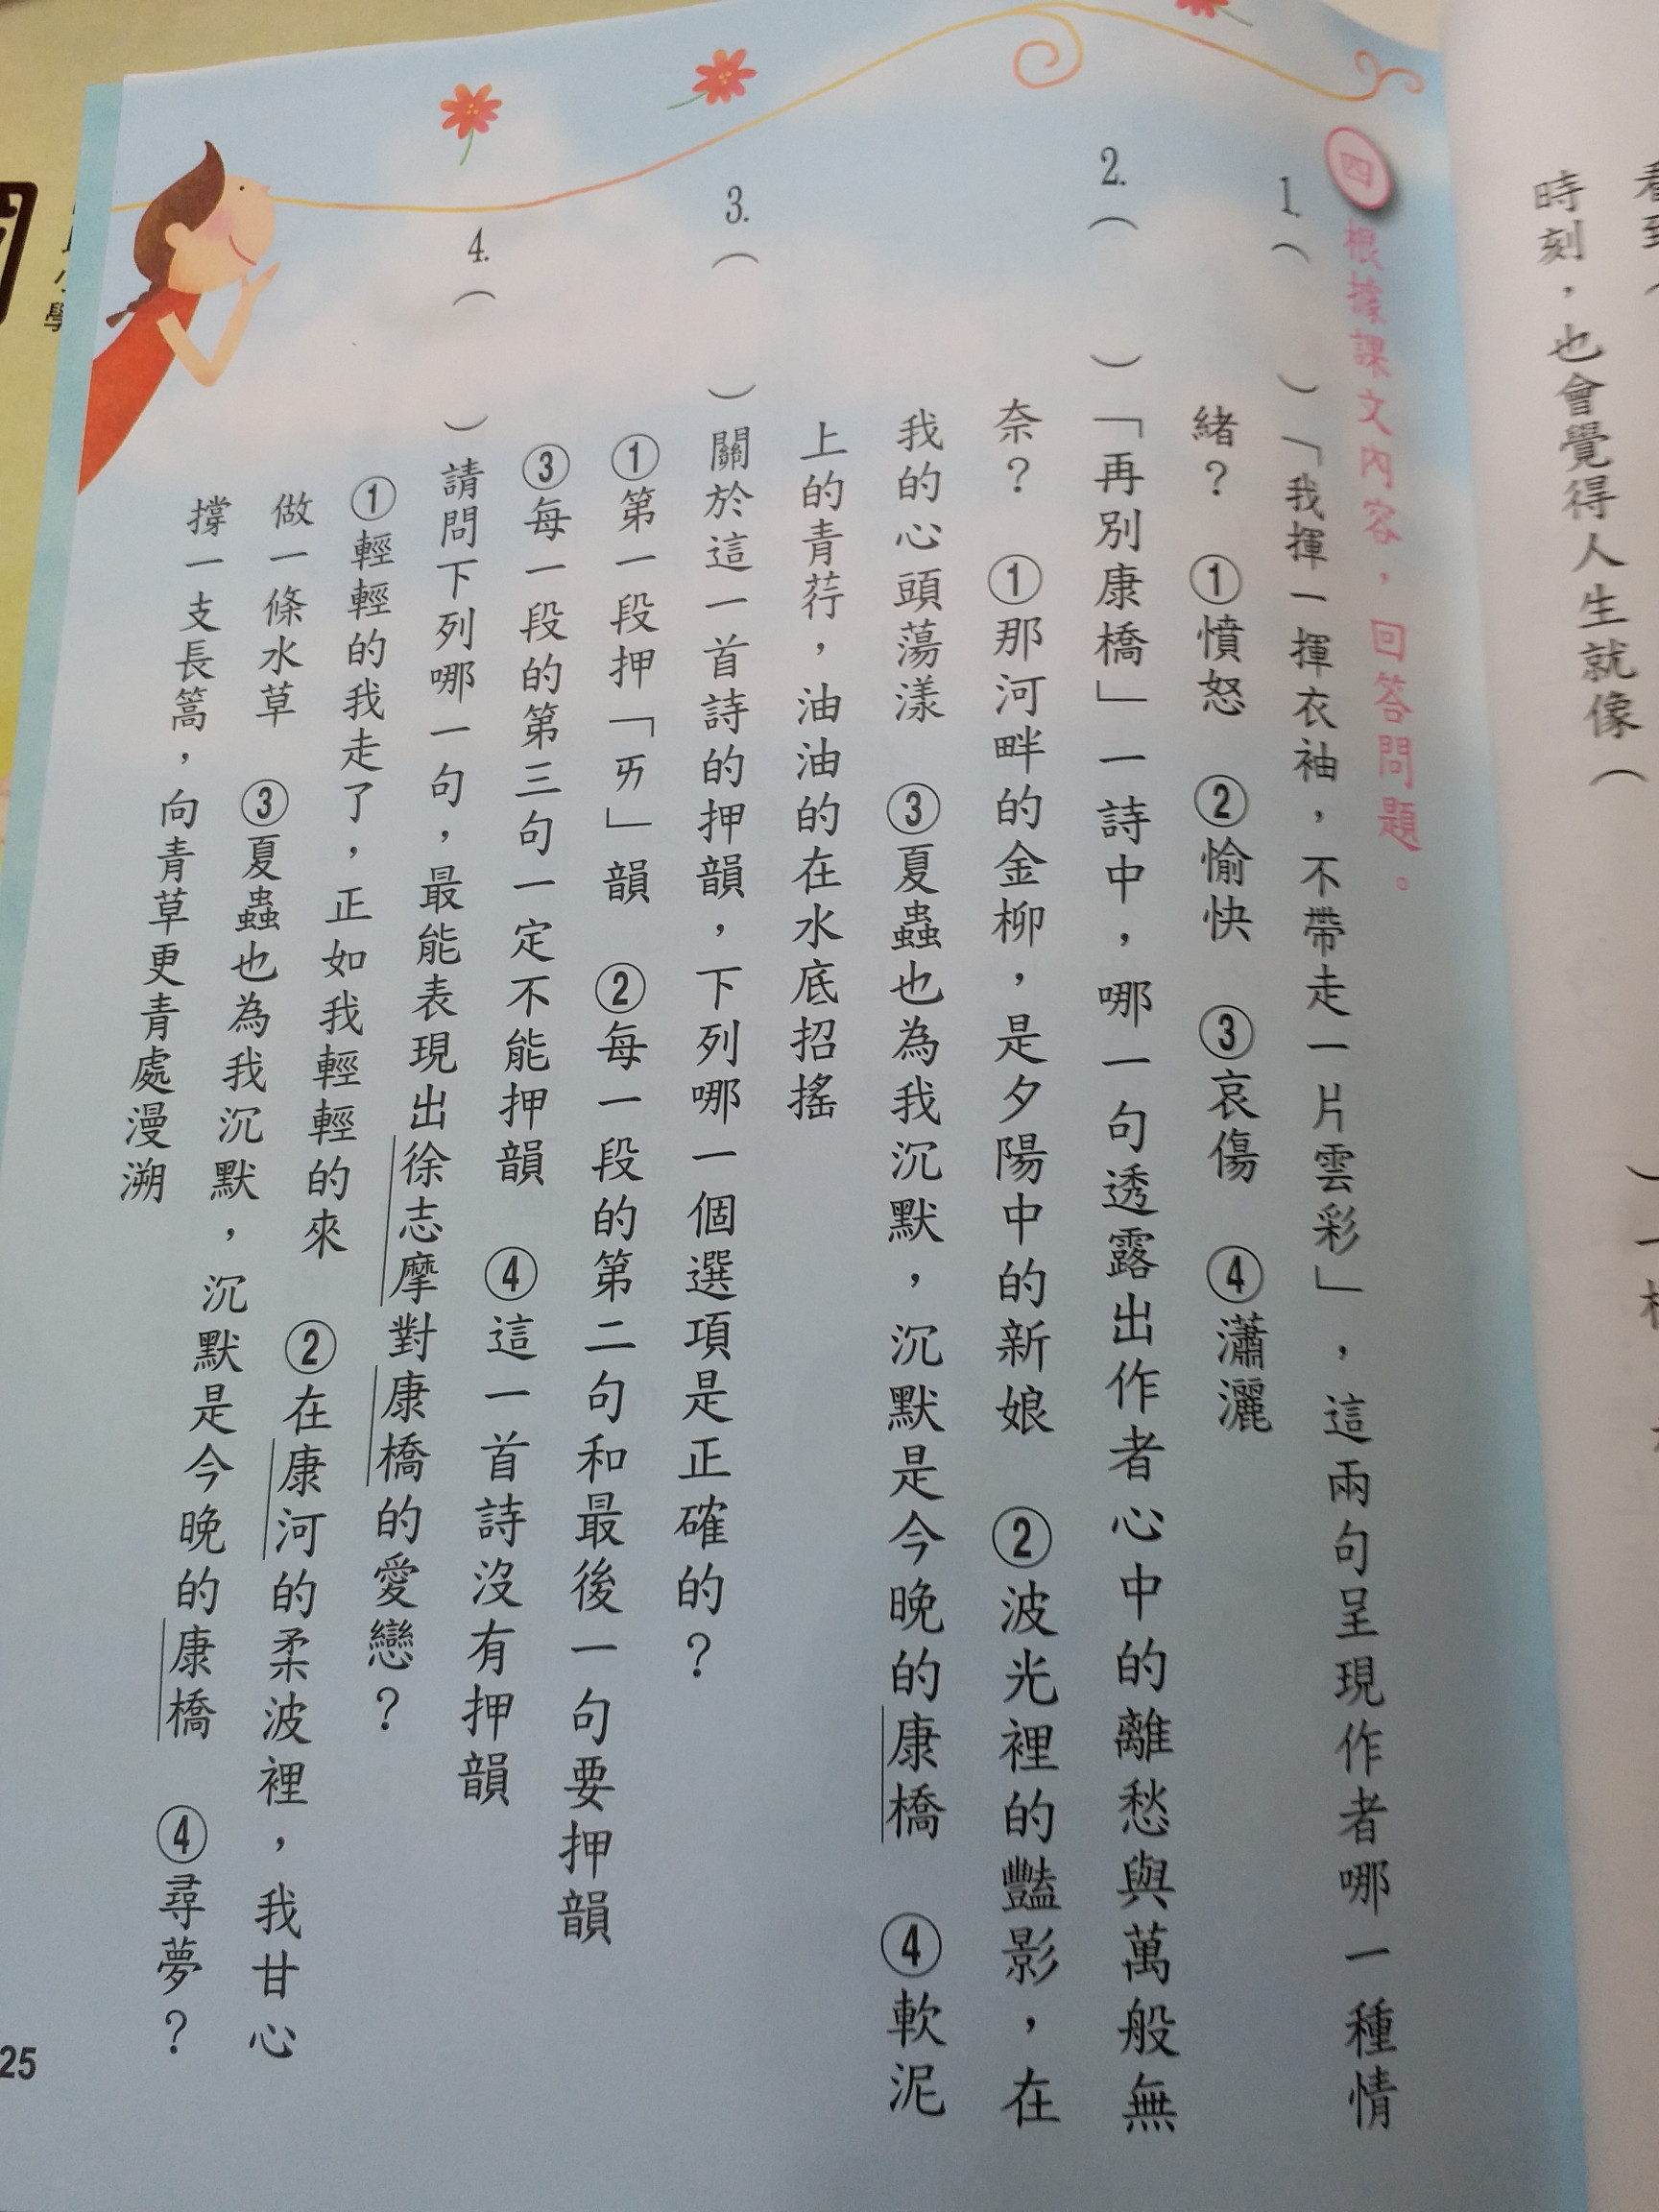 看到（
時刻，也會覺得人生就像（
四 根據課文內容，回答問題。
1.（　）「我揮一揮衣袖，不帶走一片雲彩」，這兩句呈現作者哪一種情
緒？ ①憤怒 ②愉快 ③哀傷 ④瀟灑
2.（　）「再別康橋」一詩中，哪一句透露出作者心中的離愁與萬般無
奈？ ①那河畔的金柳，是夕陽中的新娘 ②波光裡的豔影，在
我的心頭蕩漾 ③夏蟲也為我沉默，沉默是今晚的康橋 ④軟泥
上的青荇，油油的在水底招搖
3.（　）關於這一首詩的押韻，下列哪一個選項是正確的？
①第一段押「ㄞ」韻 ②每一段的第二句和最後一句要押韻
③每一段的第三句一定不能押韻 ④這一首詩沒有押韻
4.（　）請問下列哪一句，最能表現出徐志摩對康橋的愛戀？
①輕輕的我走了，正如我輕輕的來 ②在康河的柔波裡，我甘心
做一條水草 ③夏蟲也為我沉默，沉默是今晚的康橋 ④尋夢？
撐一支長篙，向青草更青處漫溯
25